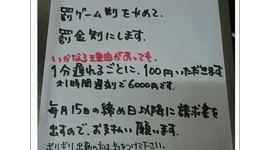 罰ゲーム制をやめて、
罰金制にします。
いかなる理由があっても、
1分遅れるごとに、100円いただきます
*1時間遅刻で6000円です。
毎月15日の締め日以降に請求書を
出すので、お支払い願います。
ギリギリ出勤の方は気をつけて下さい。